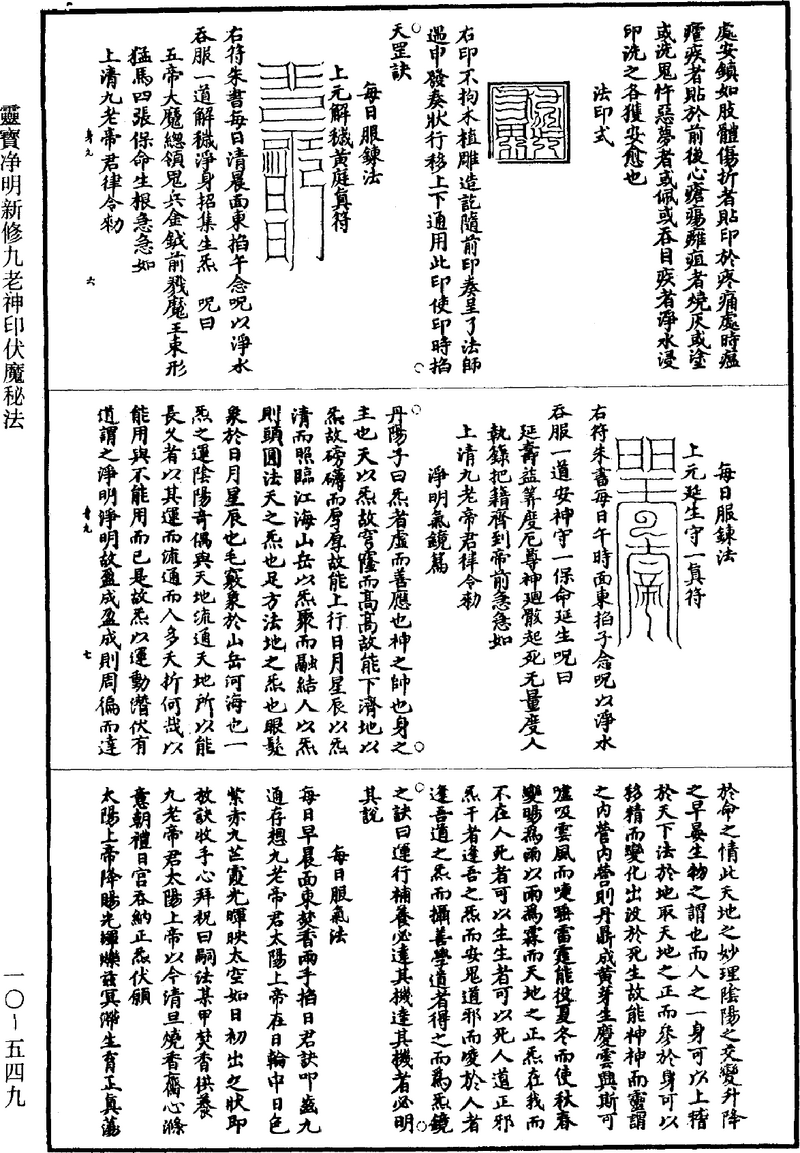 處安鎮如肢體傷折者貼印於疼痛處時瘟
瘧疾者貼於前後心瘡瘍癰疽者燒灰或塗
或洗鬼忤惡夢者或佩或吞目疾者淨水浸
印洗之各獲安愈也
法印式
右印不拘木植雕造訖隨前印奏呈了法師
遇申發奏狀行移上下通用此印使印時掐
天罡訣
每日服鍊法
上元解穢黃庭真符
右符朱書每日清晨面東掐午念呪以淨水
吞服一道解穢淨身招集生炁 呪曰
五帝大魔總領鬼兵金鉞前戮魔王束形
猛馬四張保命生根急急如
上清九老帝君律令勑
六
每日服鍊法
上元延生守一真符
右符朱書每日午時面東掐子念呪以淨水
吞服一道安神守一保命延生呪曰
延壽益筭度厄尊神迴骸起死无量度人
執籙把籍齊到帝前急急如
上清九老帝君律令勑
淨明氣鏡篇
丹陽子曰炁者虛而善應也神之帥也身之
主也天以炁故穹窿而高高故能下濟地以
炁故磅礴而厚厚故能上行日月星辰以炁
清而照臨江海山岳以炁聚而融結人以炁
則頭圓法天之炁也足方法地之炁也眼髮
象於日月星辰也毛竅象於山岳河海也一
炁之運陰陽奇偶與天地流通天地所以能
長久者以其運而流通而人多夭折何哉以
能用與不能用而已是故炁以運動潛伏有
道謂之淨明淨明故盈成盈成則周徧而達
七
於命之情此天地之妙理陰陽之交變升降
之早晏生物之謂也而人之一身可以上稽
於天下法於地取天地之正而參於身可以
移精而變化出沒於死生故能神神而靈謂
之內營內營則丹鼎成黃芽生慶雲興斯可
噓吸雲風而唾雷霆能役夏冬而使秋春
變暘為雨以雨為霖而天地之正炁在我而
不在人死者可以生生者可以死人道正邪
炁干者逢吾之炁而安鬼道邪而凌於人者
逢吾道之炁而攝善學道者得之而為炁鏡
之訣曰運行補養必達其機達其機者必明
其說
每日服氣法
每日早晨面東焚香兩手掐日君訣叩齒九
通存想九老帝君太陽上帝在日輪中日色
紫赤九芒霞光暉映太空如日初出之狀即
放訣收手心拜祝曰嗣法某甲焚香供養
九老帝君太陽上帝以今清旦燒香齋心滌
意朝禮日宮吞納正炁伏願
太陽上帝降賜光暉爍茲冥滯生育正真蕩
靈寶淨明新修九老神印伏魔秘法
一〇-五四九